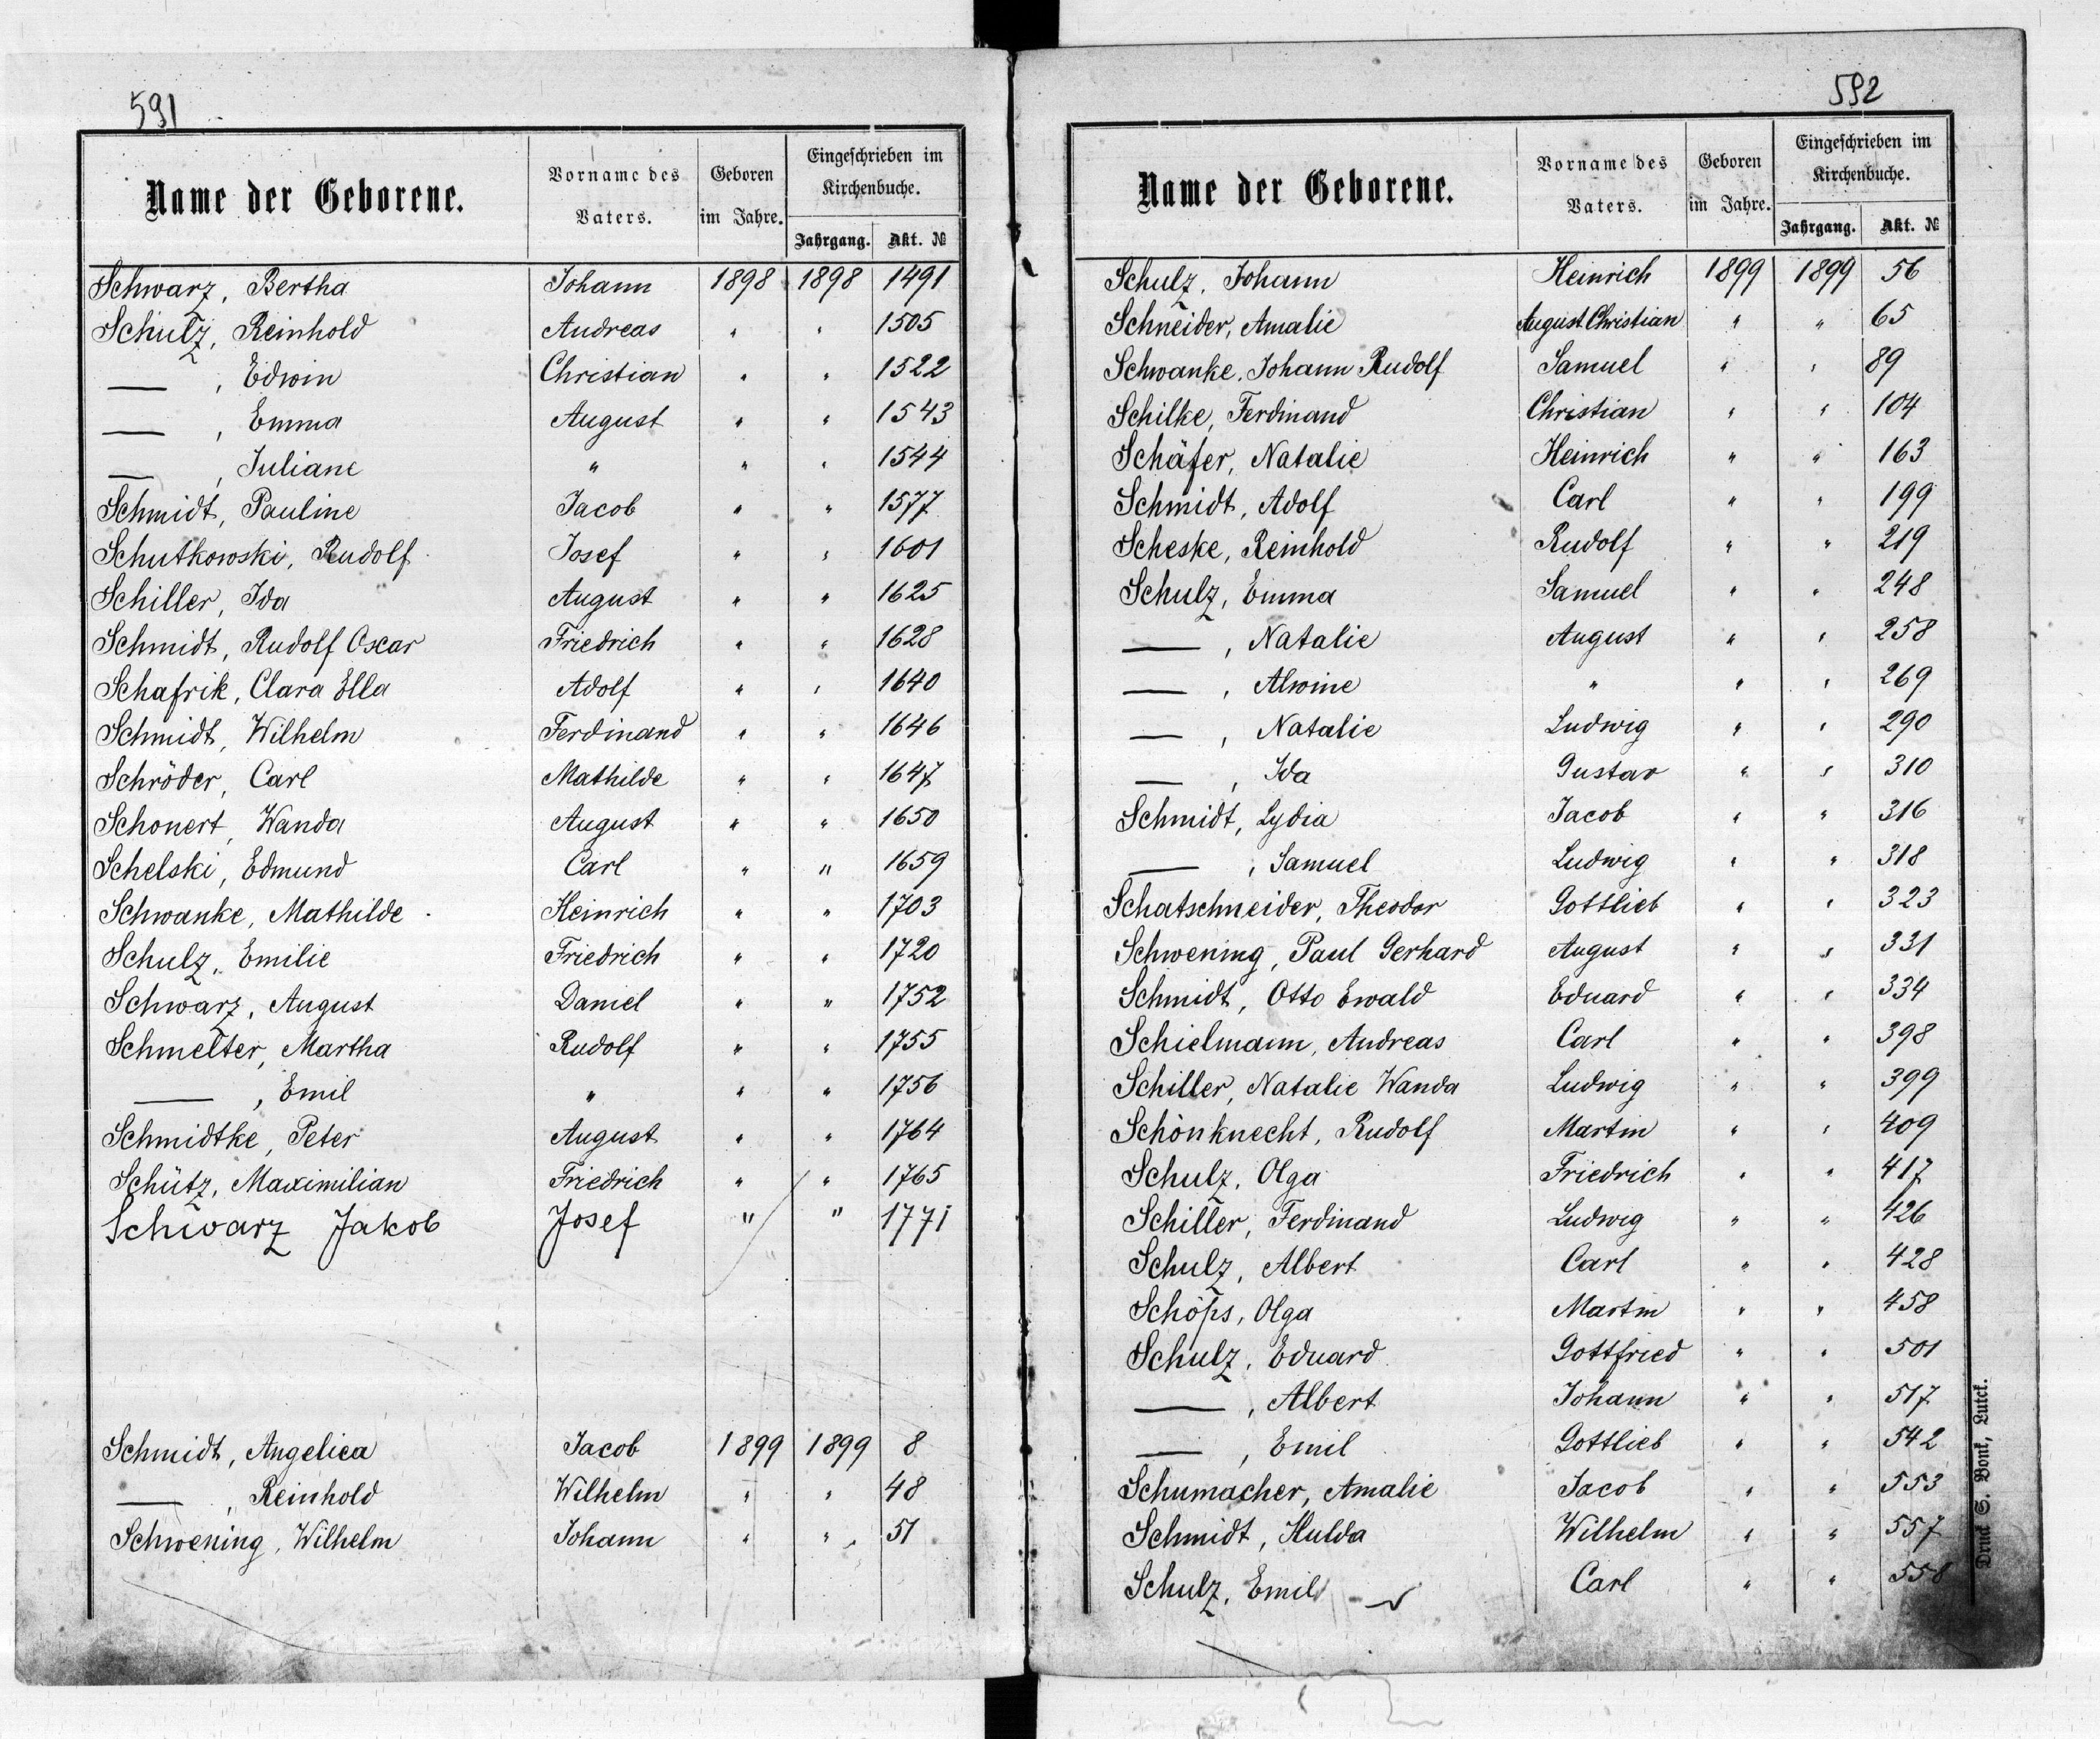 591
Name der Geborene. Vorname des Vaters. Geboren im Jahre. Eingeschrieben im Kirchenbuche. Jahrgang. Akt. №
Schwarz, Bertha Johann 1898 1898 1491
Schulz, Reinhold Andreas " " 1505
— , Edwin Christian " " 1522
— , Emma August " " 1543
— , Juliane " " " 1544
Schmidt, Pauline Jacob " " 1577
Schutkowski, Rudolf Josef " " 1601
Schiller, Ida August " " 1625
Schmidt, Rudolf Oscar Friedrich " " 1628
Schafrik, Clara Ella Adolf " " 1640
Schmidt, Wilhelm Ferdinand " " 1646
Schröder, Carl Mathilde " " 1647
Schonert, Wanda August " " 1650
Schelski, Edmund Carl " " 1659
Schwanke, Mathilde Heinrich " " 1703
Schulz, Emilie Friedrich " " 1720
Schwarz, August Daniel " " 1752
Schmelter, Martha Rudolf " " 1755
— , Emil " " " 1756
Schmidtke, Peter August " " 1764
Schütz, Maximilian Friedrich " " 1765
Schwarz Jakob Josef " " 1771
Schmidt, Angelica Jacob 1899 1899 8
— , Reinhold Wilhelm " " 48
Schwening, Wilhelm Johann " " 51
592
Name der Geborene. Vorname des Vaters. Geboren im Jahre. Eingeschrieben im Kirchenbuche. Jahrgang. Akt. №
Schulz, Johann Heinrich 1899 1899 56
Schneider, Amalie August Christian " " 65
Schwanke, Johann Rudolf Samuel " " 89
Schilke, Ferdinand Christian " " 104
Schäfer, Natalie Heinrich " " 163
Schmidt, Adolf Carl " " 199
Scheske, Reinhold Rudolf " " 219
Schulz, Emma Samuel " " 248
— , Natalie August " " 258
— , Alwine " " " 269
— , Natalie Ludwig " " 290
— , Ida Gustav " " 310
Schmidt, Lydia Jacob " " 316
— , Samuel Ludwig " " 318
Schatschneider, Theodor Gottlieb " " 323
Schwening, Paul Gerhard August " " 331
Schmidt, Otto Ewald Eduard " " 334
Schielmann, Andreas Carl " " 398
Schiller, Natalie Wanda Ludwig " " 399
Schönknecht, Rudolf Martin " " 409
Schulz, Olga Friedrich " " 417
Schiller, Ferdinand Ludwig " " 426
Schulz, Albert Carl " " 428
Schöps, Olga Martin " " 458
Schulz, Eduard Gottfried " " 501
— , Albert Johann " " 517
— , Emil Gottlieb " " 542
Schumacher, Amalie Jacob " " 553
Schmidt, Hulda Wilhelm " " 557
Schulz, Emil Carl " " 558
Druck S. Bonk, Lutck.